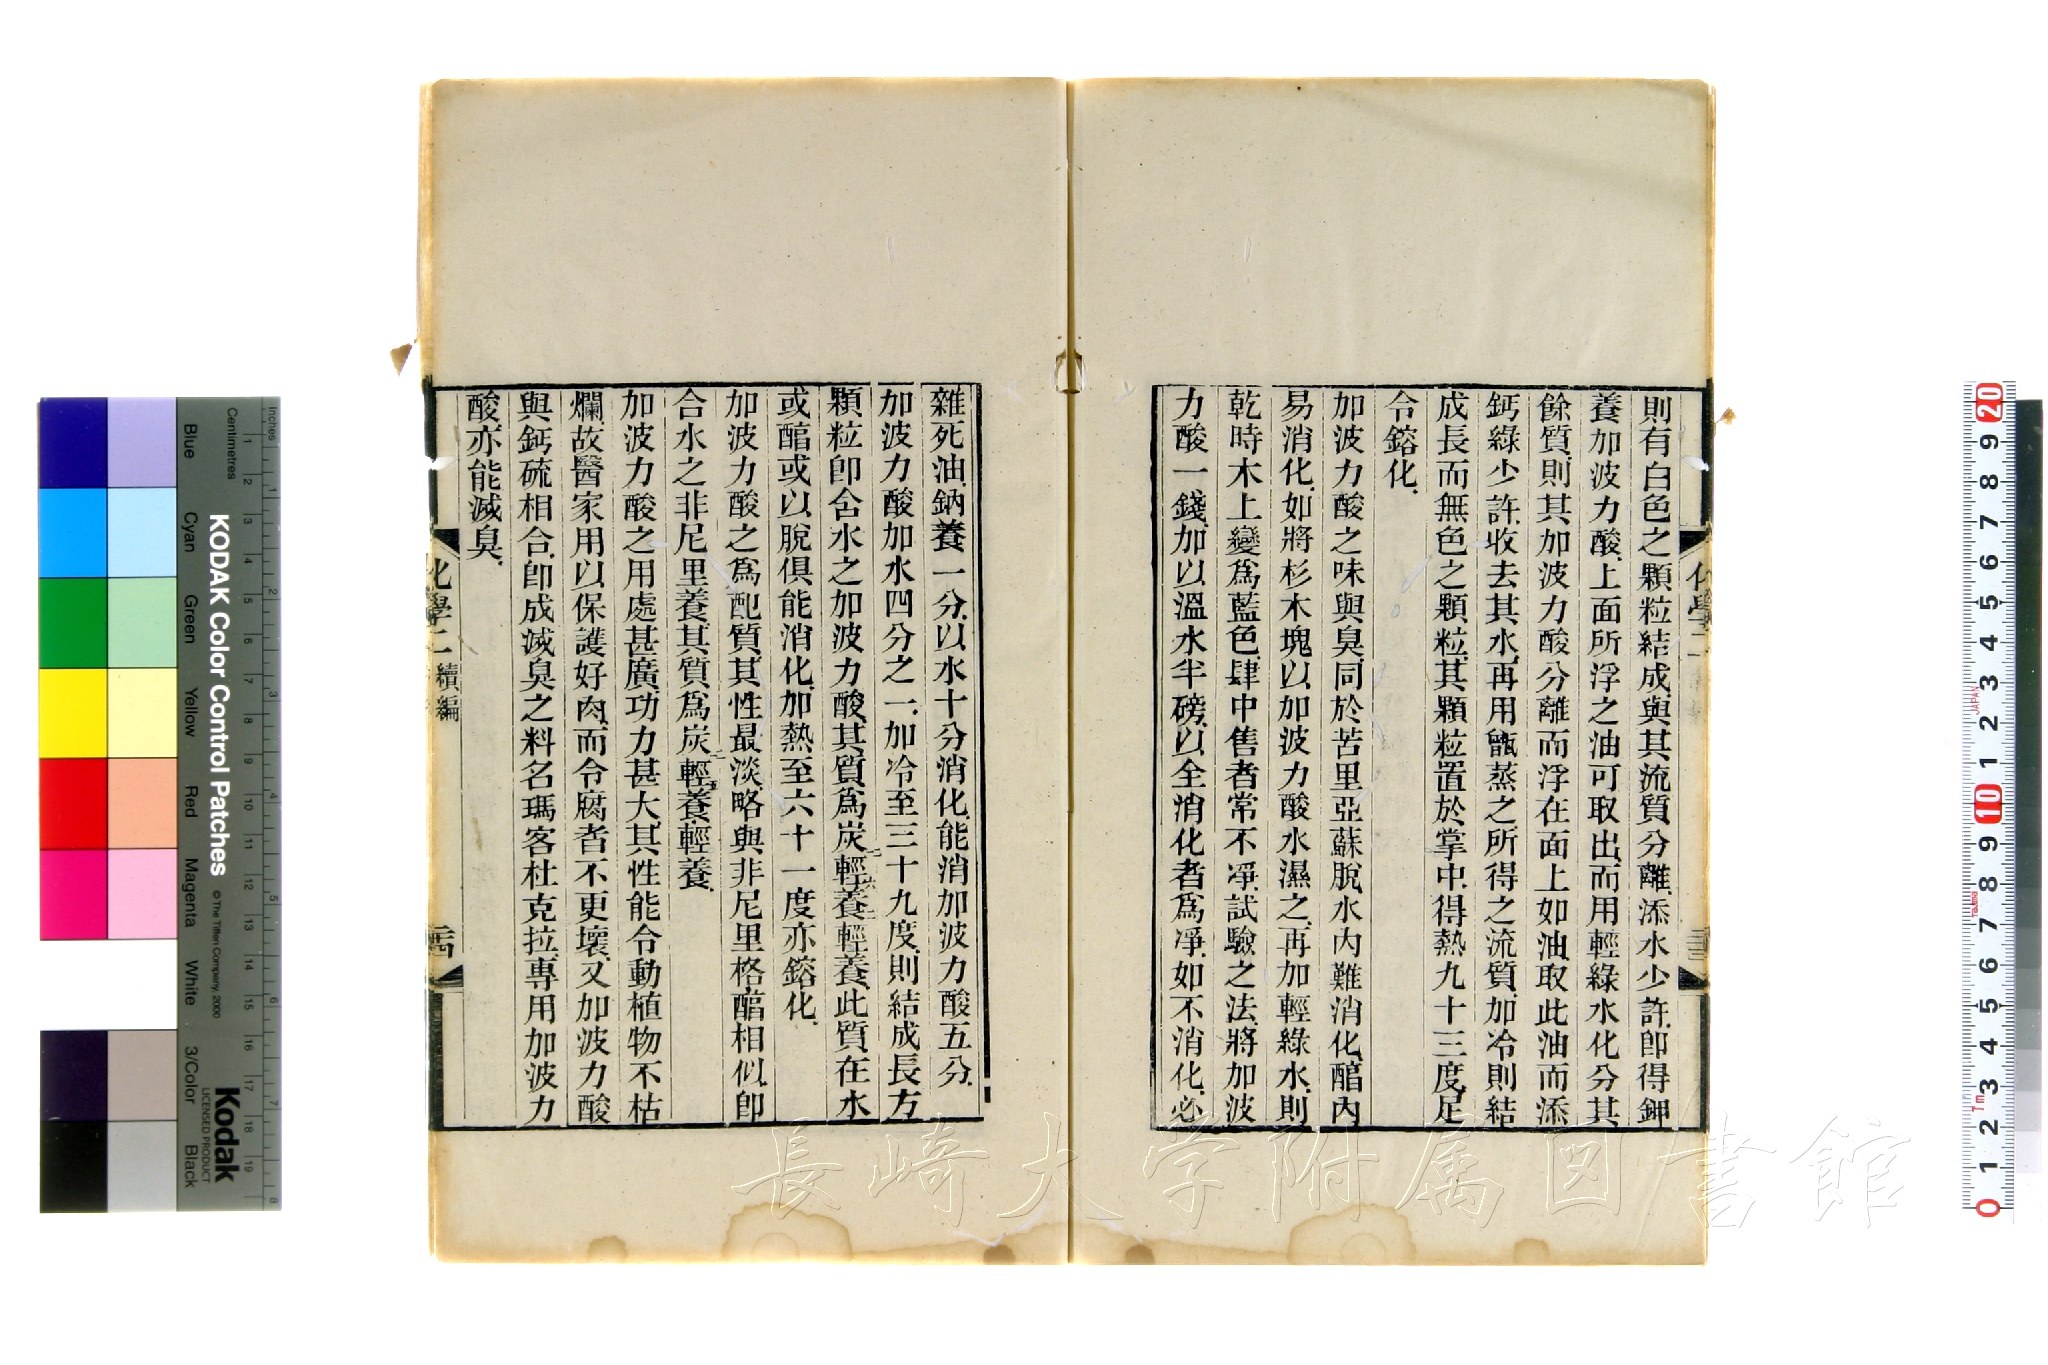 則有白色之顆粒結成與其流質分離添水少許卽得鉀
養加波力酸上面所浮之油可取出而用輕綠水化分其
餘質則其加波力酸分離而浮在面上如油取此油而添
鈣綠少許收去其水再用甑蒸之所得之流質加冷則結
成長而無色之顆粒其顆粒置於掌中得熱九十三度足
令鎔化
加波力酸之味與臭同於苦里亞蘇脫水內難消化醕內
易消化如將杉木塊以加波力酸水濕之再加輕綠水則
乾時木上變爲藍色肆中售者常不凈試驗之法將加波
力酸一錢加以溫水半磅以全消化者爲凈如不消化必
雜死油鈉養一分以水十分消化能消加波力酸五分
加波力酸加水四分之一加冷至三十九度則結成長方
顆粒卽含水之加波力酸其質爲炭輕養輕養此質在水
或醕或以脫俱能消化加熱至六十一度亦鎔化
加波力酸之爲配質其性最淡略與非尼里格醕相似卽
合水之非尼里養其質爲炭輕養輕養
加波力酸之用處甚廣功力甚大其性能令動植物不枯
爛故醫家用以保護好肉而令腐者不更壞又加波力酸
與鈣硫相合卽成滅臭之料名瑪客杜克拉專用加波力
酸亦能滅臭
化學二 續編
長崎大学附属図書館
KODAK Color Control Patches
© The Tiffen Company, 2000
Kodak
LICENSED PRODUCT
Blue Cyan Green Yellow Red Magenta White 3/Color Black
Inches
Centimetres